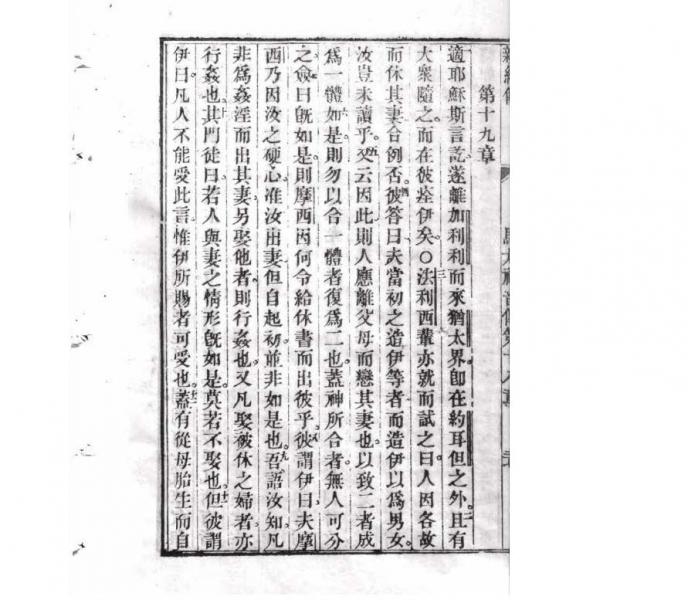 第十九章
適耶穌斯言訖遂離加利利而來猶太界卽在約耳但之外。且有
大衆隨之。而在彼痊伊矣。〇法利西輩亦就而試之曰。人因各故
而休其妻合例否。彼答曰夫當初之造伊等者而造伊以爲男女。
汝豈未讀乎。又云因此則人應離父母而戀其妻也。以致二者成
爲一體。如是則勿以合一體者復爲二也。蓋神所合者。無人可分
之。僉曰旣如是。則摩西因何令給休書而出彼乎。彼謂伊曰夫摩
西乃因汝之硬心。准汝出妻但自起初。並非如是也。吾語汝知。凡
非爲姦淫而出其妻。另娶他者。則行姦也。又凡娶被休之婦者。亦
行姦也。其門徒曰若人與妻之情形旣如是。莫若不娶也。但彼謂
伊曰。凡人不能愛此言。惟伊所賜者可愛也。蓋有從母胎生而自